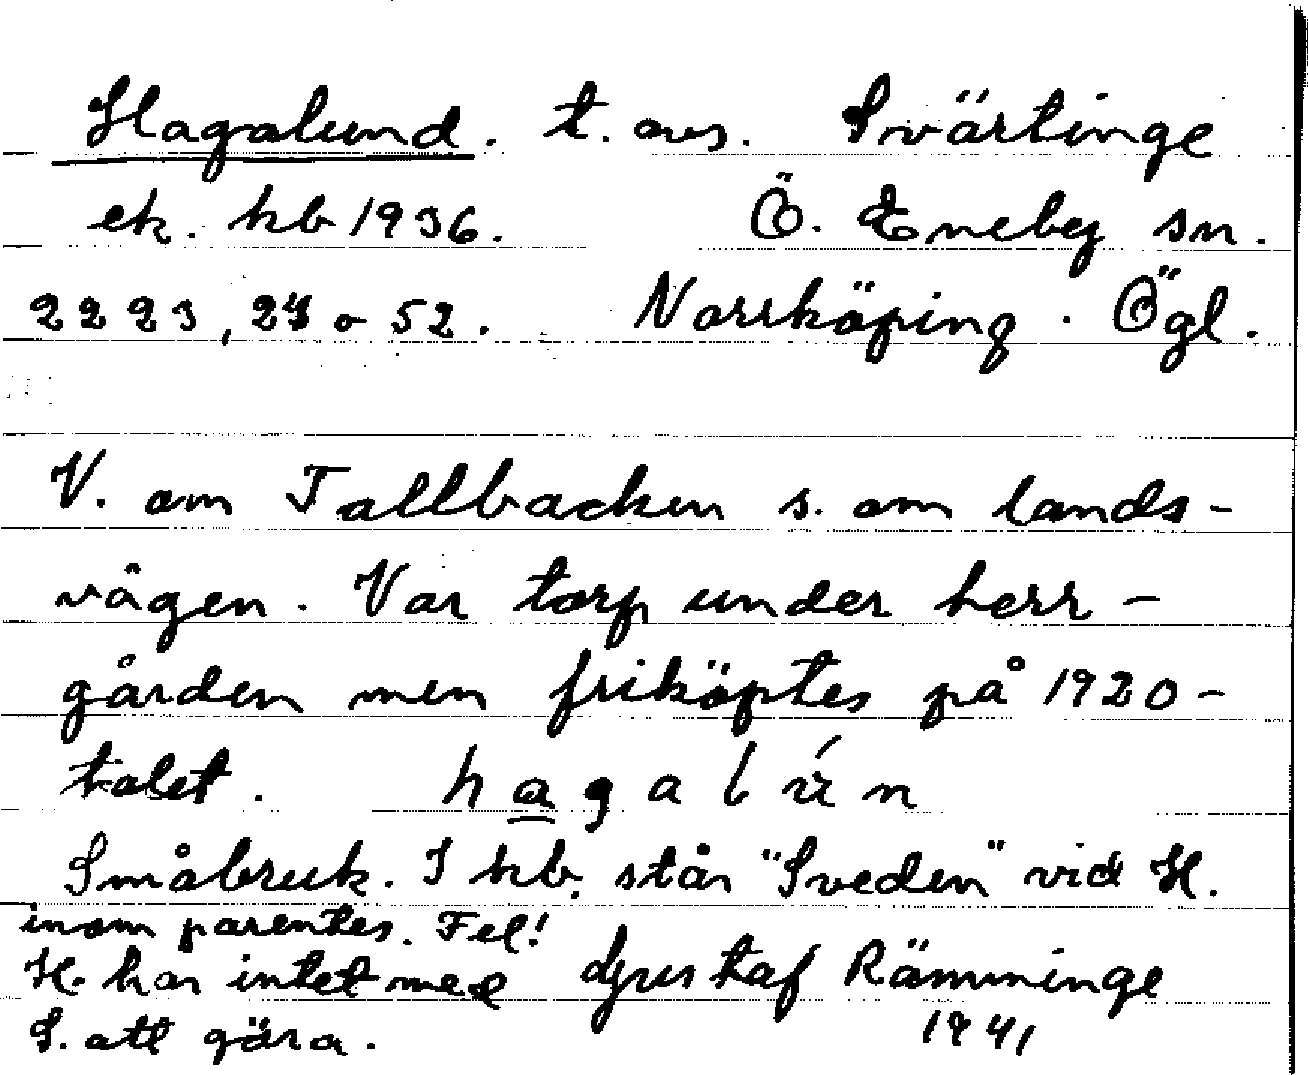 Hagalund. t. avs. Svärtinge
ek. kb 1936. Ö. Eneby sn.
2223, 24 o 52. Norrköping. Ögl.
V. om Tallbacken s. om lands-
vägen. Var torp under herr-
gården men friköptes på 1920-
talet. hagalún
Småbruk. I kb. står "Sveden" vid H.
inom parentes. Fel!
H. har intet med
S. att göra.
Gustaf Rämminge
1941